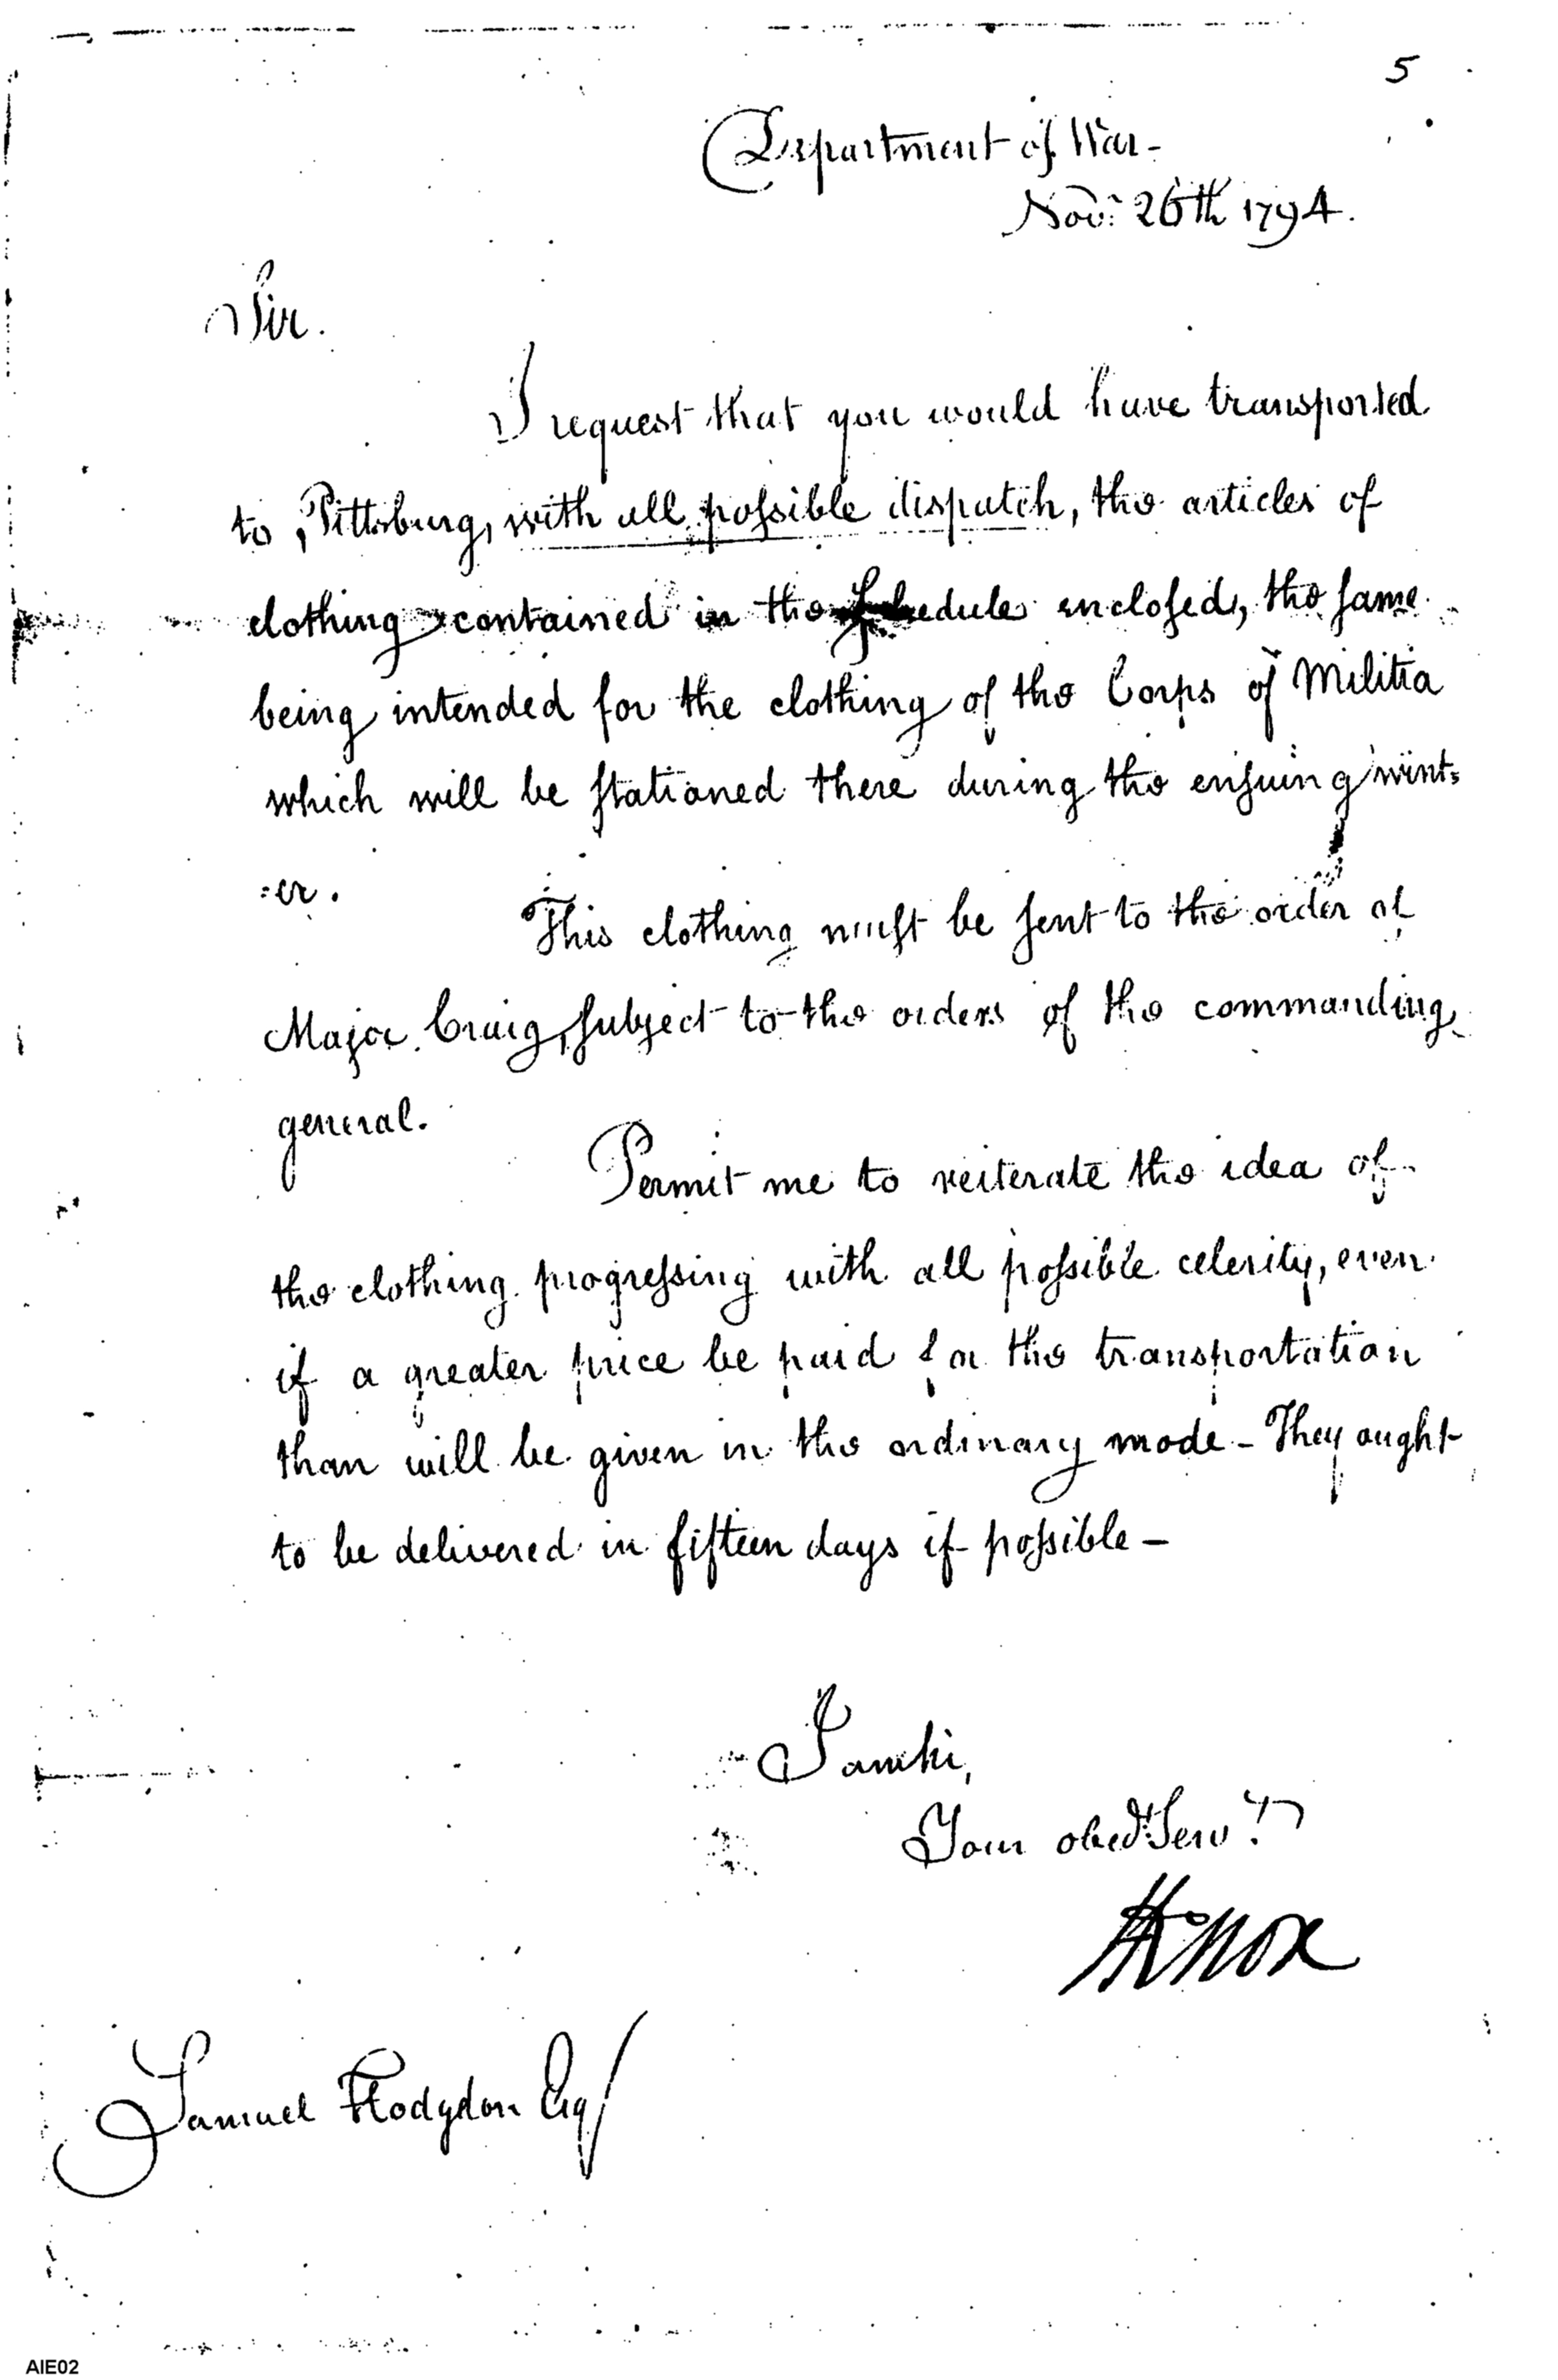 5
Department of War-
Nov: 26th 1794.
Sir.
I request that you would have transported
to Pittsburg, with all poſsible dispatch, the articles of
clothing contained in the Schedule encloſed, the ſame
being intended for the clothing of the Corps of Militia
which will be ſtationed there during the enſuing wint=
=er.
This clothing muſt be ſent to the order of
Major Craig, ſubject to the orders of the commanding
general.
Permit me to reiterate the idea of
the clothing progreſsing with all poſsible celerity, even
if a greater price be paid for the transportation
than will be given in the ordinary mode - They ought
to be delivered in fifteen days if poſsible -
I am Sir,
Your obedt Servt
HKnox
Samuel Hodgdon Esq
AIE02